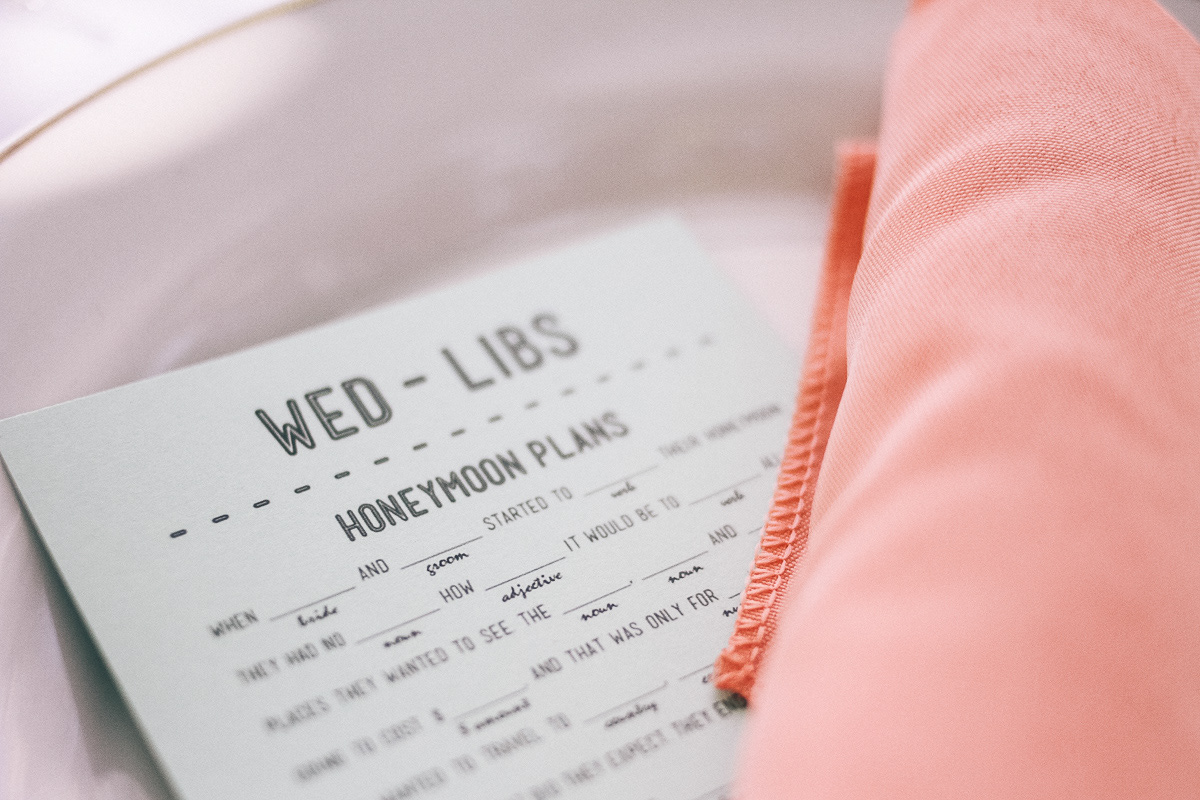 WED - LIBS
HONEYMOON PLANS
WHEN ____ AND ____ STARTED TO ____ THEIR HONEYMOON
bride groom verb
THEY HAD NO ____ HOW ____ IT WOULD BE TO ____
noun adjective verb
PLACES THEY WANTED TO SEE THE ____, ____ AND
noun noun
GOING TO COST $ ____ AND THAT WAS ONLY FOR
$ amount
WANTED TO TRAVEL TO ____, ____
country
DID THEY EXPECT THEY